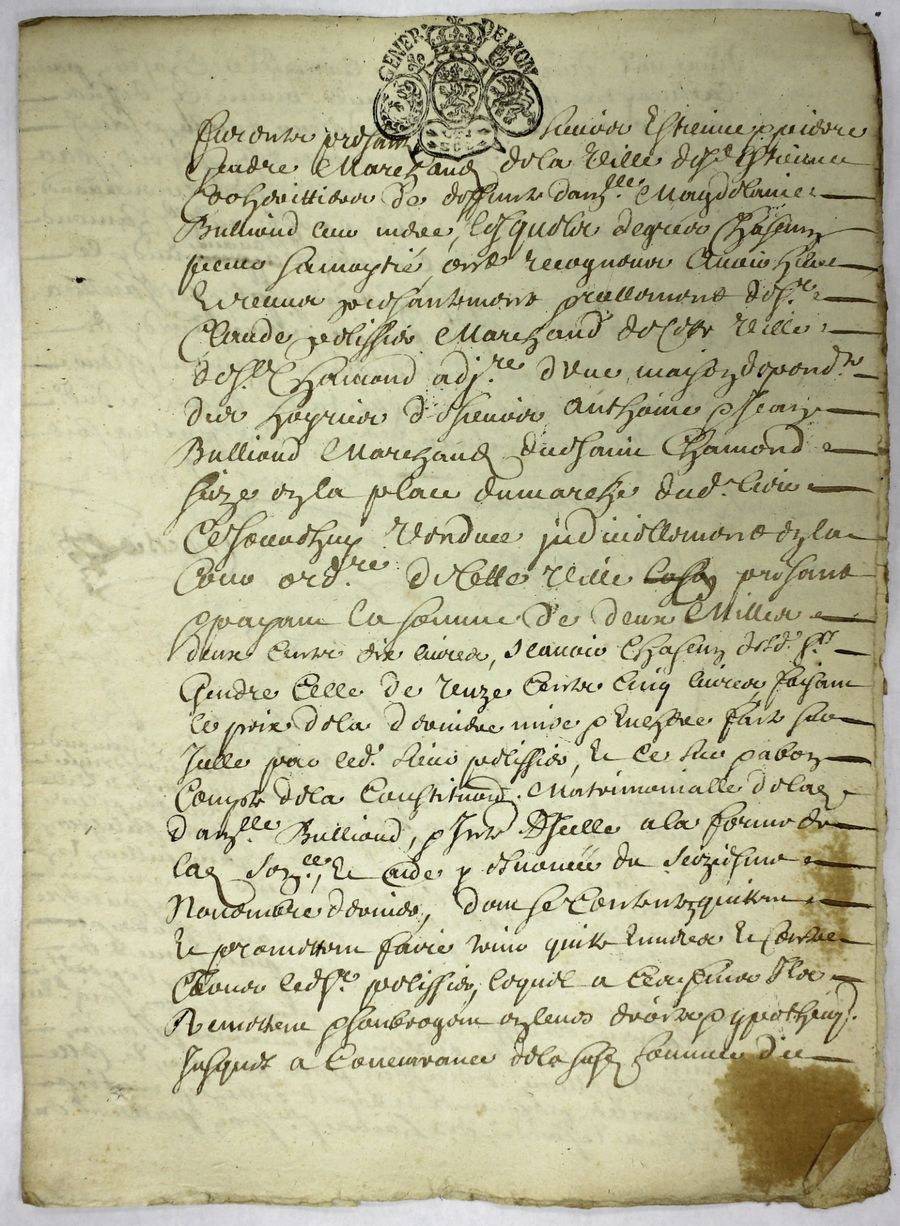 GENER DE LION
furent presant sieurs Estienne & pierre
Gendre Marchand de la Ville de st Estienne
Coheritiers de deffunte dam.lle Magdelaine
Bulliand leur mere, lesquels de gré Chascun
pour sa moytié, ont recogneu avoir heu
et receu presantement reellement de s.r
Claude pelissier Marchand de cette Ville
de st Chamond adj.re d'une maison
des hoyries de sieurs Anthoine & Jean
Bulliand Marchand dud saint Chamond
size en la place du marché dud. lieu
Vendue judiciellement en la
Cour ord.re de Cette Ville presant
& payant la somme de deux Mille
deux Cents dix livres, scavoir Chascun desd. s.rs
Gendre Celle de unze Cents Cinq livres faisant
le prix de la derniere mise & Enchere faite sur
Icelle par led. sieur pelissier, et ce sur & abon
Compte de la Constitution Matrimonialle de lad
dam.lle Bulliand, & Icelle a la forme de
lad & du seiziesme
Novembre dernier, dont se Contentent quittent
et promettent faire tenir quitte Envers et Contre
Tous led s.r pelissier, lequel
Remettent & subrogent en leurs droits & ypotheques
Jusques a Concurrance de la susd somme de